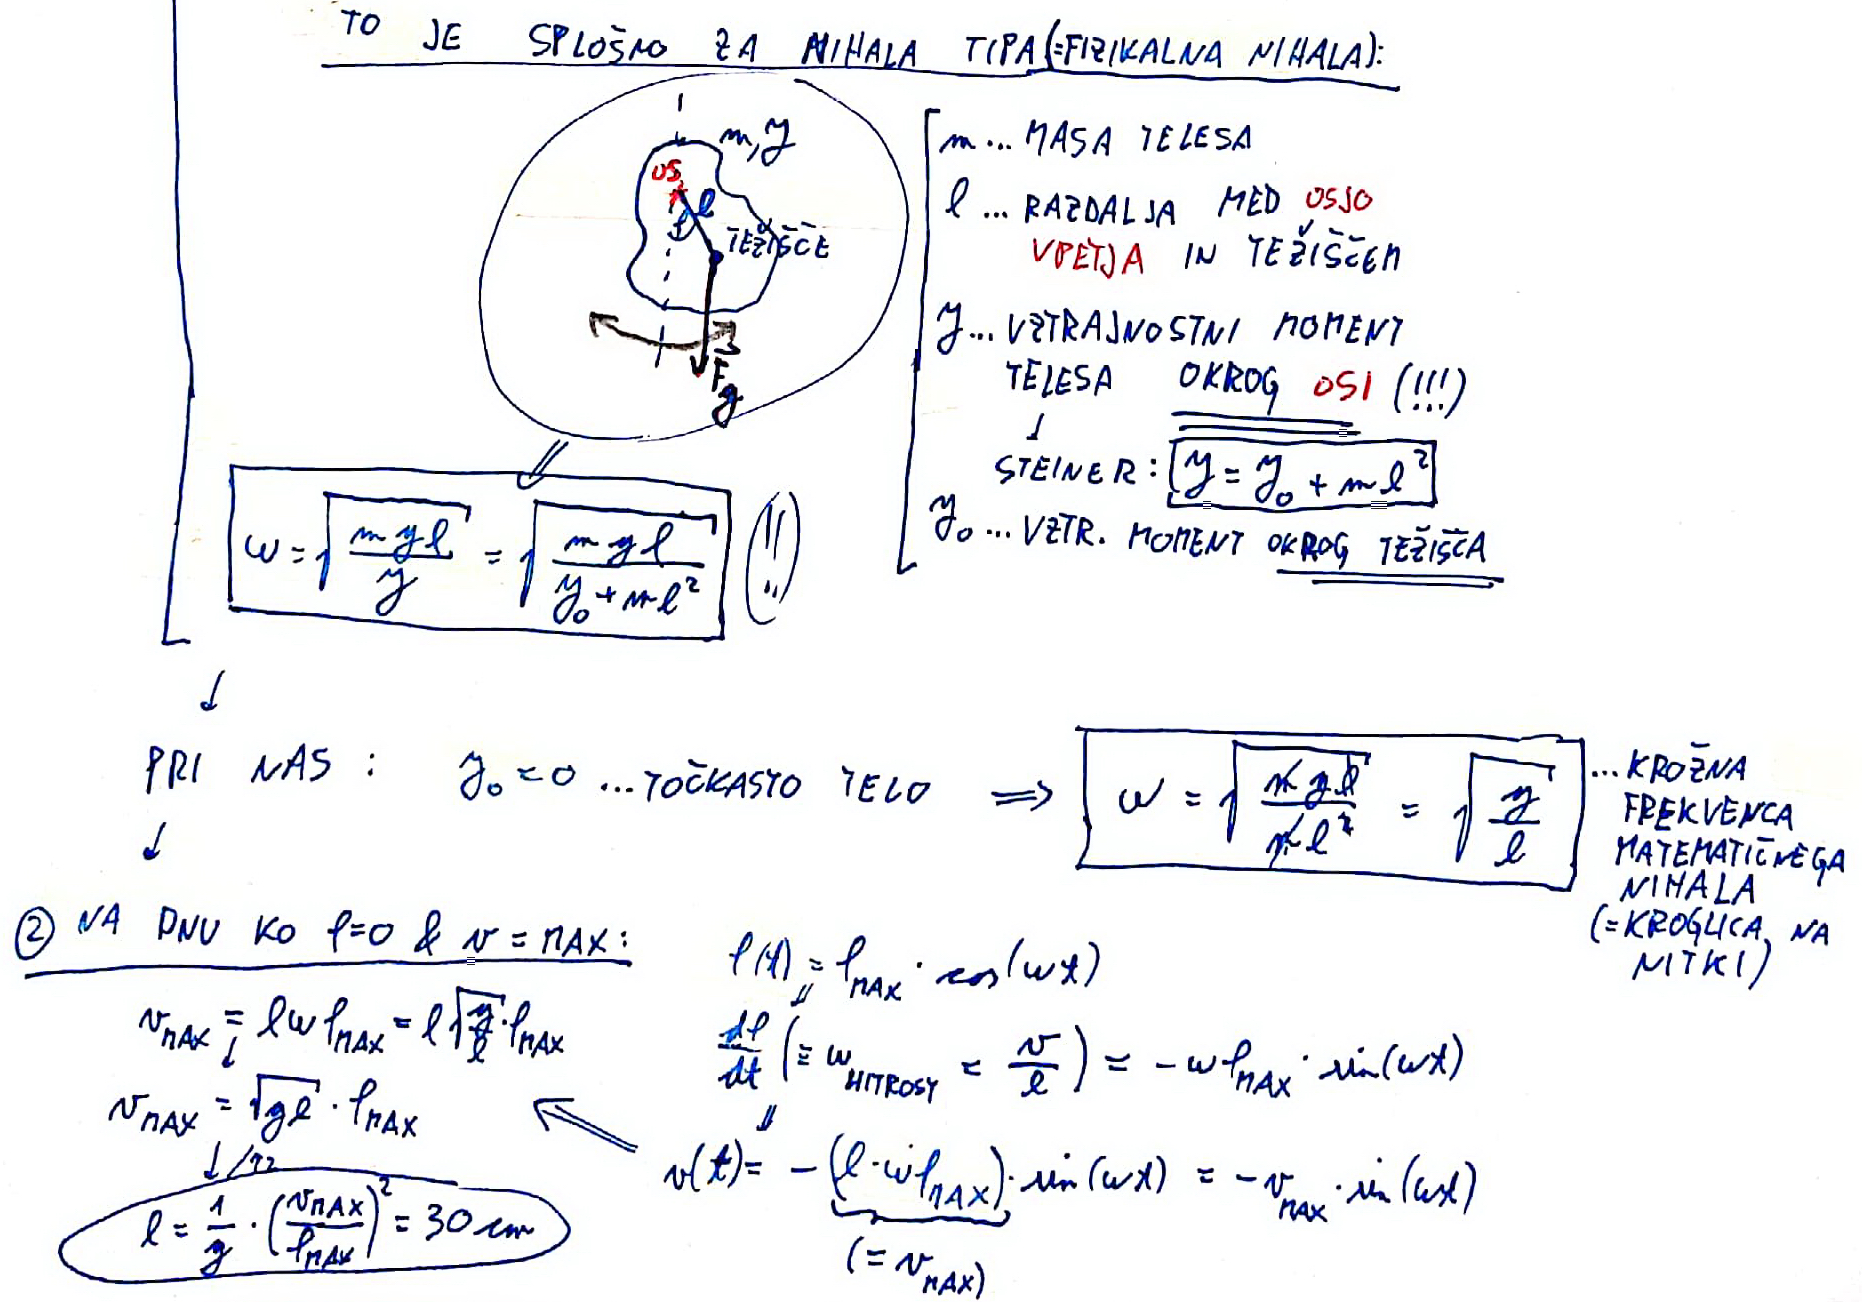 TO JE SPLOŠNO ZA NIHALA TIPA (=FIZIKALNA NIHALA):
m, J
OS
φ l
TEŽIŠČE
F_g
m ... MASA TELESA
l ... RAZDALJA MED OSJO
VPETJA IN TEŽIŠČEM
J ... VZTRAJNOSTNI MOMENT
TELESA OKROG OSI (!!!)
↓
STEINER: J = J₀ + ml²
J₀ ... VZTR. MOMENT OKROG TEŽIŠČA
ω = √(mgl/J) = √(mgl/(J₀ + ml²)) (!!)
↓
PRI NAS: J₀ = 0 ... TOČKASTO TELO ⇒ ω = √(mgl/ml²) = √(g/l) ... KROŽNA
FREKVENCA
MATEMATIČNEGA
NIHALA
(=KROGLICA NA
NITKI)
↓
② NA DNU KO φ=0 & v = MAX:
v_MAX = lωφ_MAX = l√(g/l)·φ_MAX
↓
v_MAX = √(gl) · φ_MAX
↓ /²
l = 1/g · (v_MAX/φ_MAX)² = 30 cm
φ(t) = φ_MAX · cos(ωt)
⇓
dφ/dt (≡ ω_HITROST = v/l) = -ωφ_MAX · sin(ωt)
⇓
v(t) = -(l·ωφ_MAX)·sin(ωt) = -v_MAX · sin(ωt)
(= v_MAX)